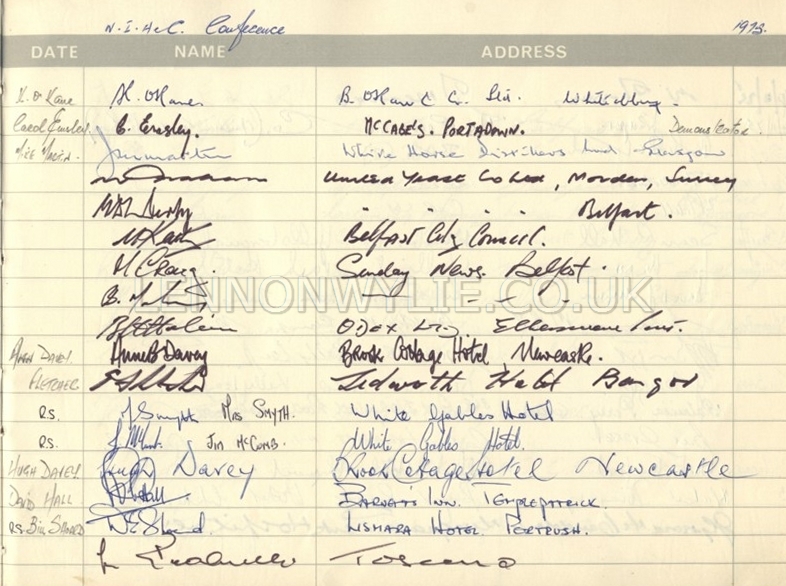 N.I.H&C. Conference 1975.
DATE NAME ADDRESS
K. O Kane K. O'Kane. B. O'Kane & Co. Ltd. Whiteabbey.
Carol Emsley C. Emsley. McCABE'S. PORTADOWN. Demonstrator
Mike Martin White Horse Distillers Ltd Glasgow
United Yeast Co Ltd, Morden, Surrey
" " " " Belfast.
Belfast City Council.
M. Craig. Sunday News. Belfast.
B.
Odex Ltd. Ellesmere Port.
ANNE DAVEY. Anne B Davey Brook Cottage Hotel Newcastle.
FLETCHER Tedworth Hotel Bangor
RS. J Smyth MRS SMYTH. White Gables Hotel
RS. JIM McCOMB. White Gables Hotel.
HUGH DAVEY. Hugh Davey Brook Cottage Hotel Newcastle
DAVID HALL D Hall BARNEY'S INN. TEMPLEPATRICK.
RS. BILL W E LISMARA HOTEL PORTRUSH.
Toscana
LENNONWYLIE.CO.UK